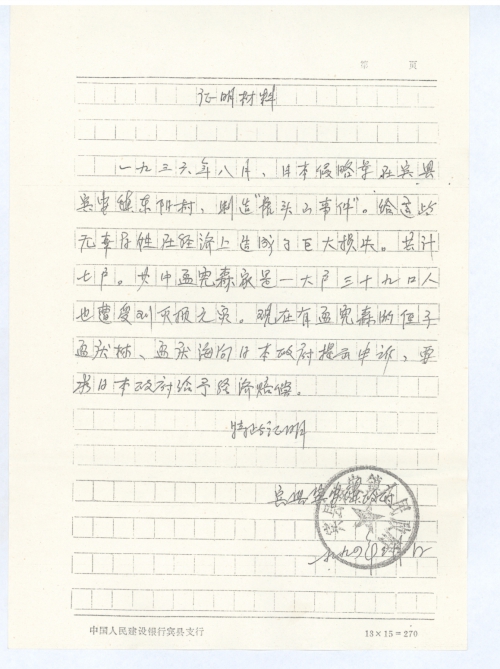 第 页
证明材料
一九三六年八月，日本侵略军在宾县
宾安镇东阳村，制造“ 头山事件”。给这些
无辜百姓在经济上造成了巨大损失。共计
七户。其中孟宪森家是一大户三十九口人
也遭受到灭顶之灾。现在有孟宪森的侄子
孟庆林、孟庆海向日本政府提出申诉，要
求日本政府给予经济赔偿。
特此证明
宾县宾安镇政府
一九九
中国人民建设银行宾县支行
13×15=270